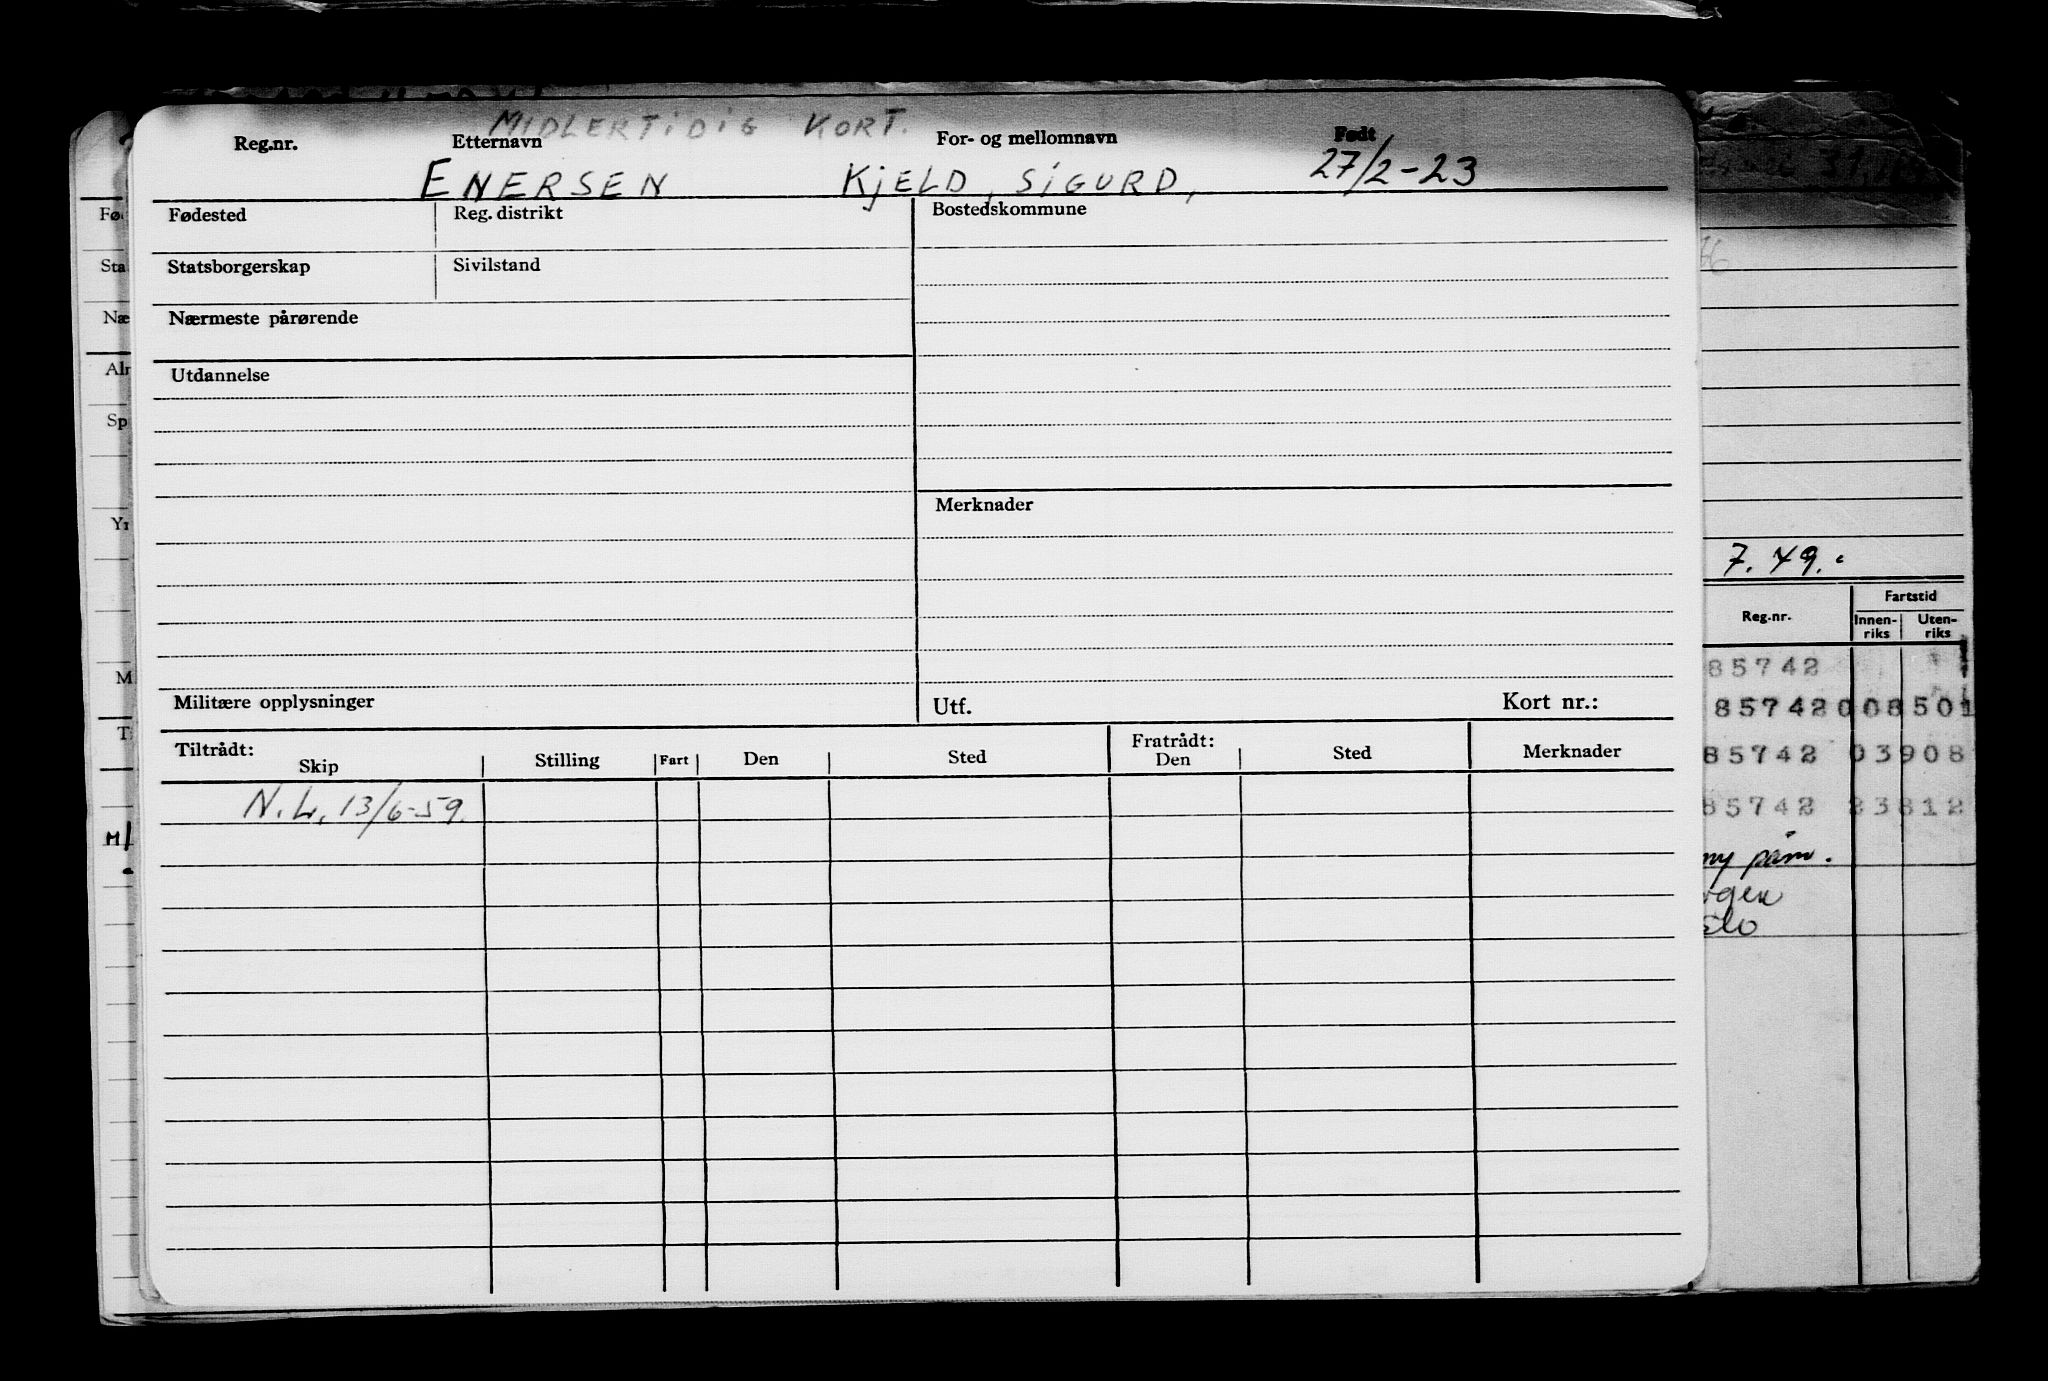 MIDLERTIDIG KORT.
Reg.nr. Etternavn For- og mellomnavn Født
ENERSEN KJELD, SIGURD, 27/2-23
Fødested Reg. distrikt Bostedskommune
Statsborgerskap Sivilstand
Nærmeste pårørende
Utdannelse
Merknader
Militære opplysninger Utf. Kort nr.:
Tiltrådt: Fratrådt:
Skip Stilling Fart Den Sted Den Sted Merknader
N.L. 13/6-59.
Fø
Sta
Næ
Aln
Sp
Yr
M
T
M
7. 49.
Reg.nr. Fartstid
Innen-riks Uten-riks
85742
85742 008501
85742 03908
85742 23812
ny påm.